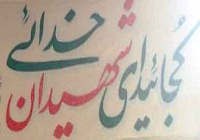 کجائید ای شهیدان خدائی